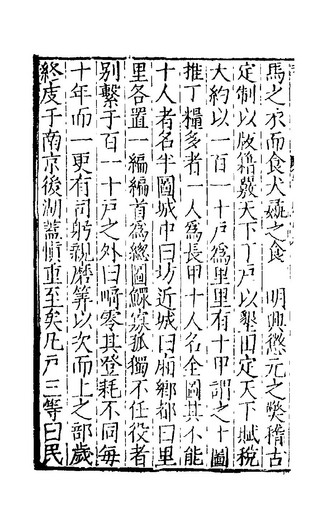 馬之衣而食犬彘之食　明興懲元之獘稽古
定制以版籍覈天下丁戶以墾田定天下賦稅
大約以一百一十戶爲里里有十甲謂之十圖
推丁糧多者一人爲長甲十人名全圖其不能
十人者名半圖城中曰坊近城曰廂鄉都曰里
里各置一編編首爲總圖鰥寡孤獨不任役者
別繫于百一十戶之外曰畸零其登耗不同每
十年而一更有司躬親磨筭以次而上之部歲
終庋于南京後湖蓋慎重至矣凡戶三等曰民